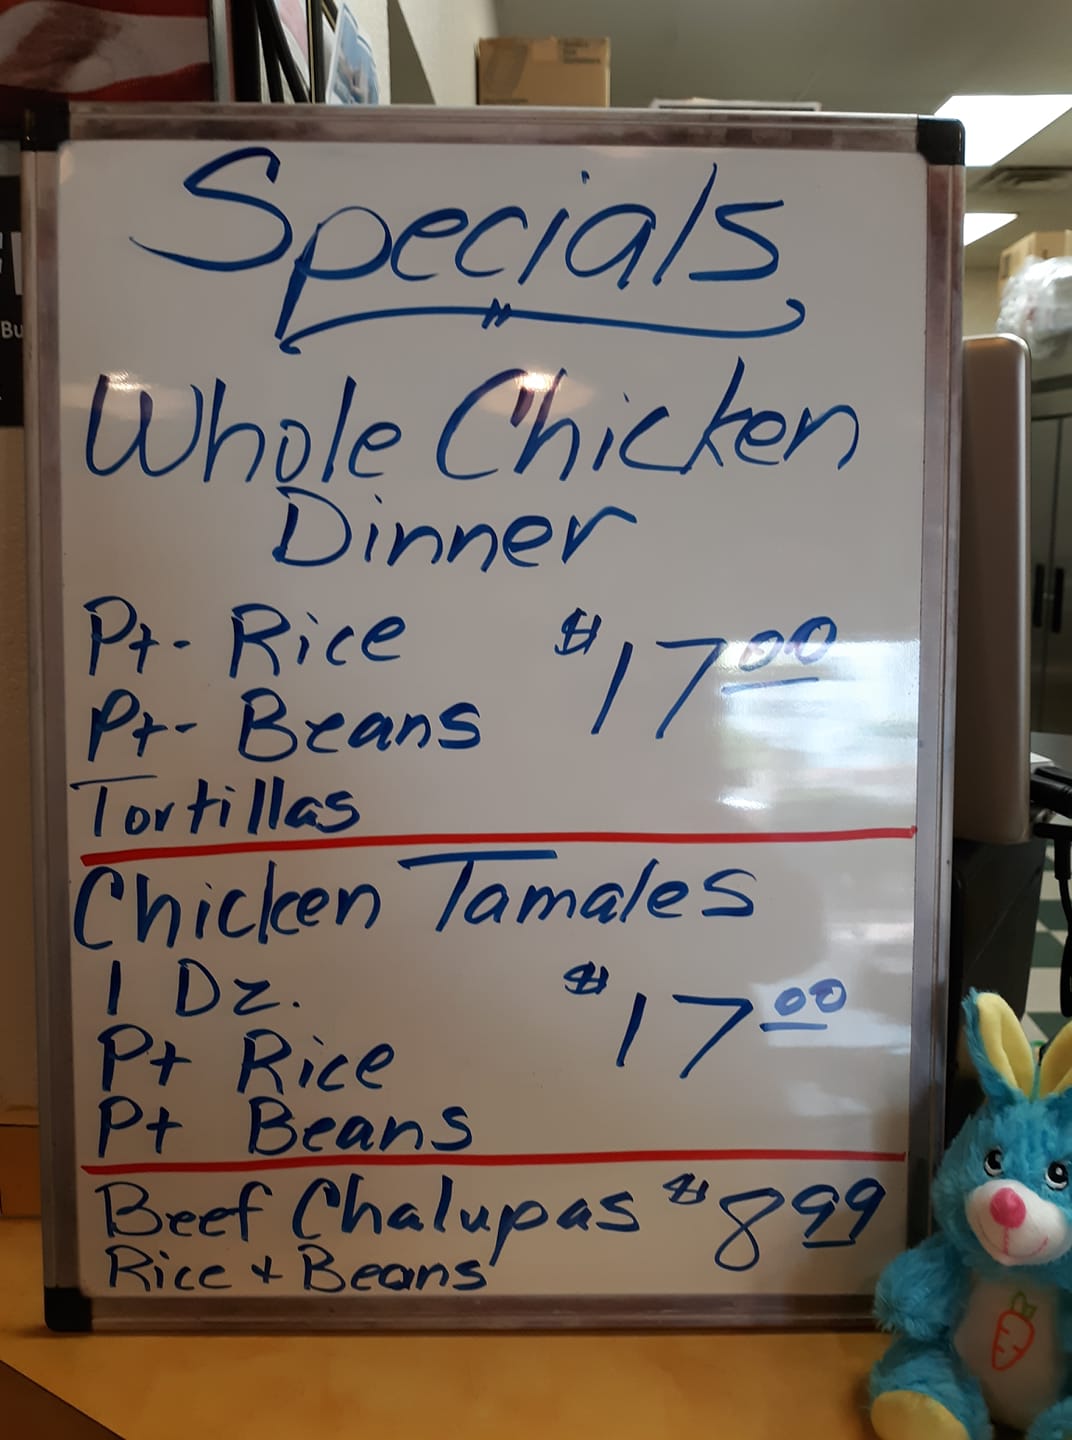 Specials
Whole Chicken
Dinner
Pt- Rice $17.00
Pt- Beans
Tortillas
Chicken Tamales
1 Dz. $17.00
Pt Rice
Pt Beans
Beef Chalupas $8.99
Rice + Beans
Bu